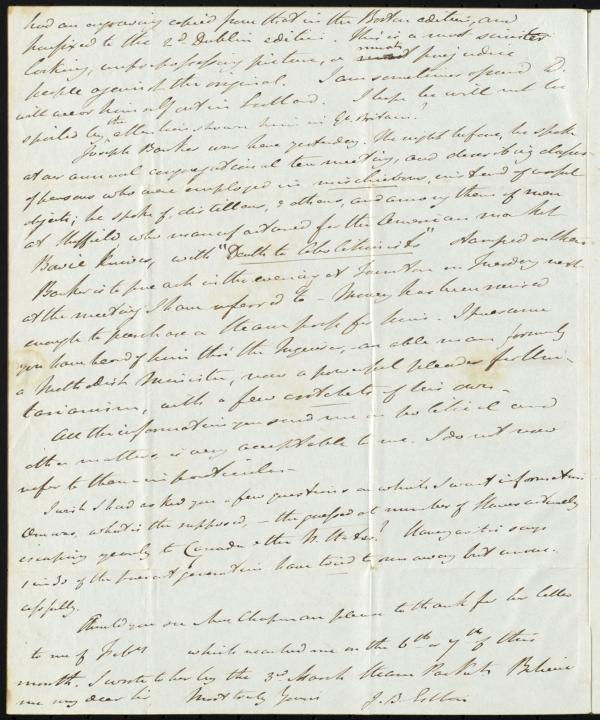 had an engraving copied from that in the Boston edition, and
prefixed to the 2d Dublin edition. This is a most sinister
looking, unprepossessing picture, & must prejudice
people against the original. I am sometimes afraid D.
will wear himself out in Scotland. I hope he will not be
spoiled by the attention shown him in Gt. Britain!
Joseph Barker was here yesterday. The night before, he spoke
at our annual congregational tea meeting, and describing classes
of persons who were employed in mischievous, instead of useful
objects; he spoke of distillers, & others, and among them of men
at Sheffield who manufactured for the American market
Bowie knives, with "Death to Abolitionists" stamped on them
Barker is to preach in the evening at Taunton on Tuesday next
at the meeting I have referred to – Money has been raised
enough to purchase a steam press for him. I presume
you have heard of him thro' the Inquirer, – an able man formerly
a Methodist Minister, now a powerful pleader for Uni-
tarianism, with a few crotchets of his own –
All the information you send me on political and
other matters is very acceptable to me. I do not now
refer to them in particular –
I wish I had asked you a few questions on which I want information
One was, what is the supposed, – the guessed at number of Slaves actually
escaping yearly to Canada & the N. States? says
1 in 30 of the present generation have tried to run away but unsuc-
cessfully.
Should you see Mrs Chapman please to thank for her letter
to me of Feby which reached me on the 6th or 7th of this
month. I wrote to her by the 3rd March Steam Packet. Believe
me my dear Sir Most truly Yours J. B. Estlin